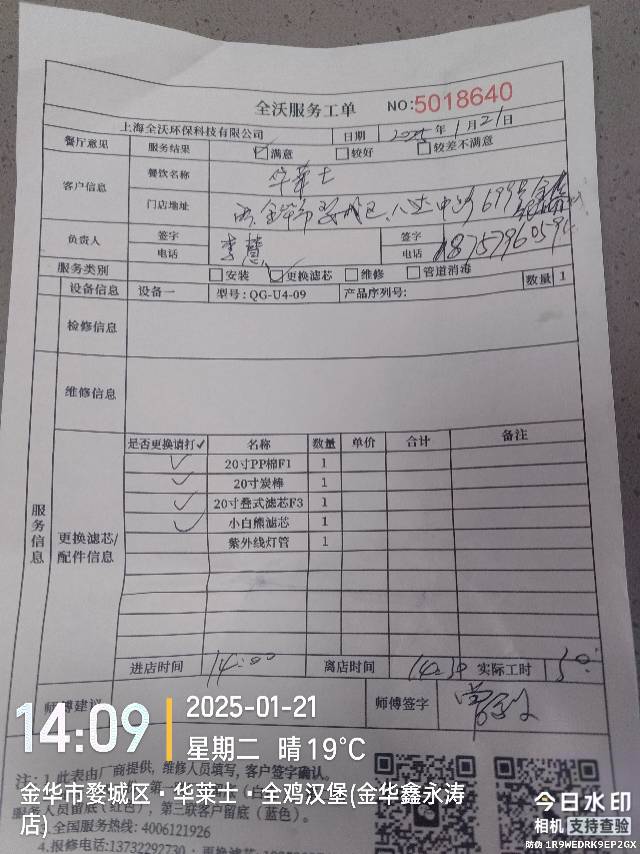 全沃服务工单 NO:5018640
上海全沃环保科技有限公司 日期 年1月21日
餐厅意见 服务结果 ☑满意 □较好 □较差不满意
客户信息 餐饮名称 华莱士
门店地址 金华市 699号
负责人 签字 李慧 签字
电话 电话 1875796059
服务类别 □安装 ☑更换滤芯 □维修 □管道消毒
设备信息 设备一 型号:QG-U4-09 产品序列号: 数量 1
检修信息
维修信息
服务信息
更换滤芯/配件信息
是否更换请打✓ 名称 数量 单价 合计 备注
✓ 20寸PP棉F1 1
✓ 20寸炭棒 1
✓ 20寸叠式滤芯F3 1
✓ 小白熊滤芯 1
紫外线灯管 1
进店时间 14:00 离店时间 实际工时
师傅建议 师傅签字
14:09 2025-01-21
星期二 晴 19℃
注:1.此表由厂商提供,维修人员填写,客户签字确认。
金华市婺城区·华莱士·全鸡汉堡(金华鑫永涛店)
第三联客户留底(蓝色)。
全国服务热线:4006121926
4.报修电话:13732292730
今日水印
相机 支持查验
防伪 1R9WEDRK9EP2GX